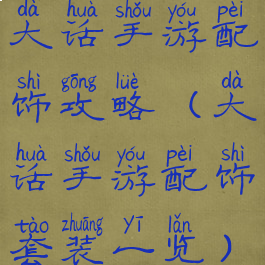 dà huà shǒu yóu pèi
大话手游配
shì gōng lüè dà
饰攻略（大
huà shǒu yóu pèi shì
话手游配饰
tào zhuāng yī lǎn
套装一览）